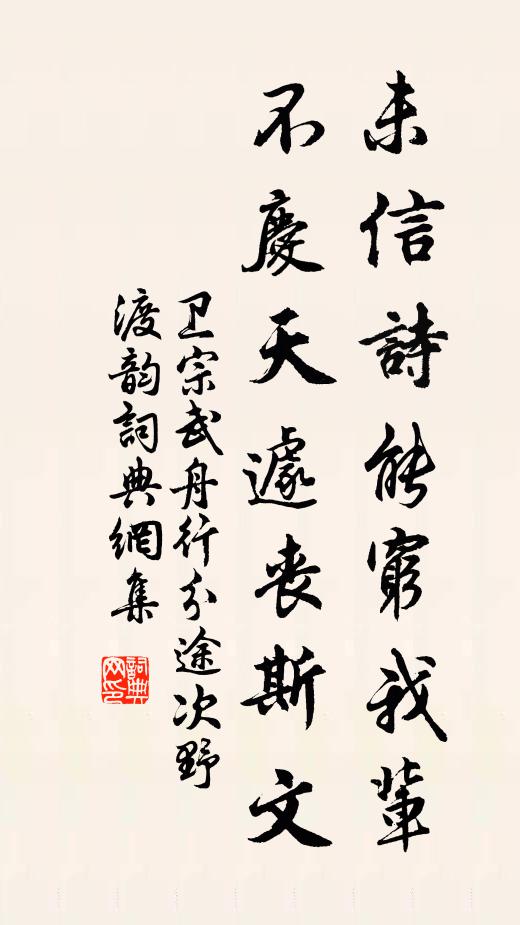 未信詩能窮我輩
不慶天遽丧斯文
卫宗武舟行分途次野
渡韵詞典網集
詞典
网印